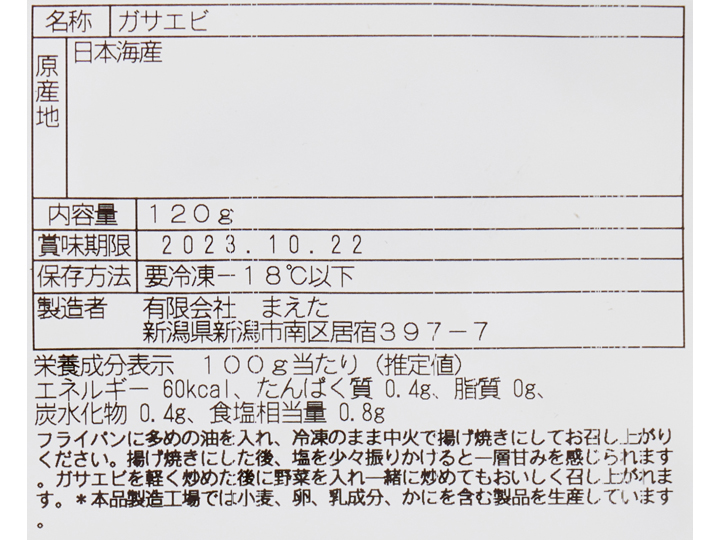 名称 ガサエビ
原産地 日本海産
内容量 120g
賞味期限 2023.10.22
保存方法 要冷凍－18℃以下
製造者 有限会社 まえた
新潟県新潟市南区居宿397－7
栄養成分表示 100g当たり（推定値）
エネルギー 60kcal、たんぱく質 0.4g、脂質 0g、
炭水化物 0.4g、食塩相当量 0.8g
フライパンに多めの油を入れ、冷凍のまま中火で揚げ焼きにしてお召し上がり
ください。揚げ焼きにした後、塩を少々振りかけると一層甘みを感じられます
。ガサエビを軽く炒めた後に野菜を入れ一緒に炒めてもおいしく召し上がれま
す。＊本品製造工場では小麦、卵、乳成分、かにを含む製品を生産しています
。